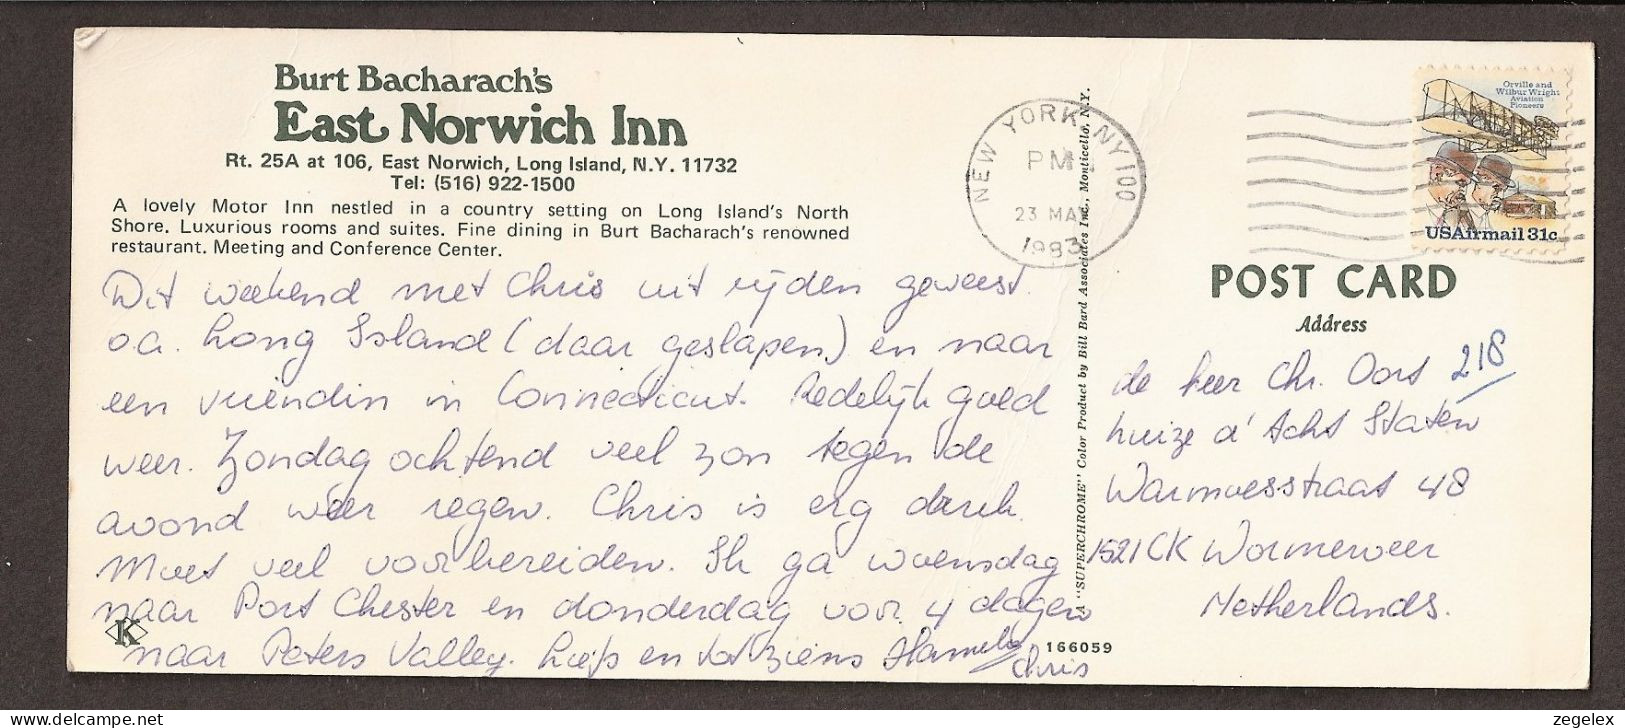 Burt Bacharach's
East Norwich Inn
Rt. 25A at 106, East Norwich, Long Island, N.Y. 11732
Tel: (516) 922-1500
A lovely Motor Inn nestled in a country setting on Long Island's North
Shore. Luxurious rooms and suites. Fine dining in Burt Bacharach's renowned
restaurant. Meeting and Conference Center.
Dit weekend met Chris uit rijden geweest.
o.a. Long Island (daar geslapen) en naar
een vriendin in Connecticut. Redelijk goed
weer. Zondag ochtend veel zon tegen de
avond weer regen. Chris is erg druk.
Moet veel voorbereiden. Ik ga woensdag
naar Port Chester en donderdag voor 4 dagen
naar Peters Valley. Liefs en tot ziens
Chris
K
166059
A "SUPERCHROME" Color Product by Bill Bard Associates Inc., Monticello, N.Y.
NEW YORK, NY 100
PM
23 MAY
1983
Orville and
Wilbur Wright
Aviation
Pioneers
USAirmail 31c
POST CARD
Address
de heer Chr. Oort 218
huize d' Acht Staten
Warmoesstraat 48
1521 CK Wormerveer
Netherlands.
zegelex